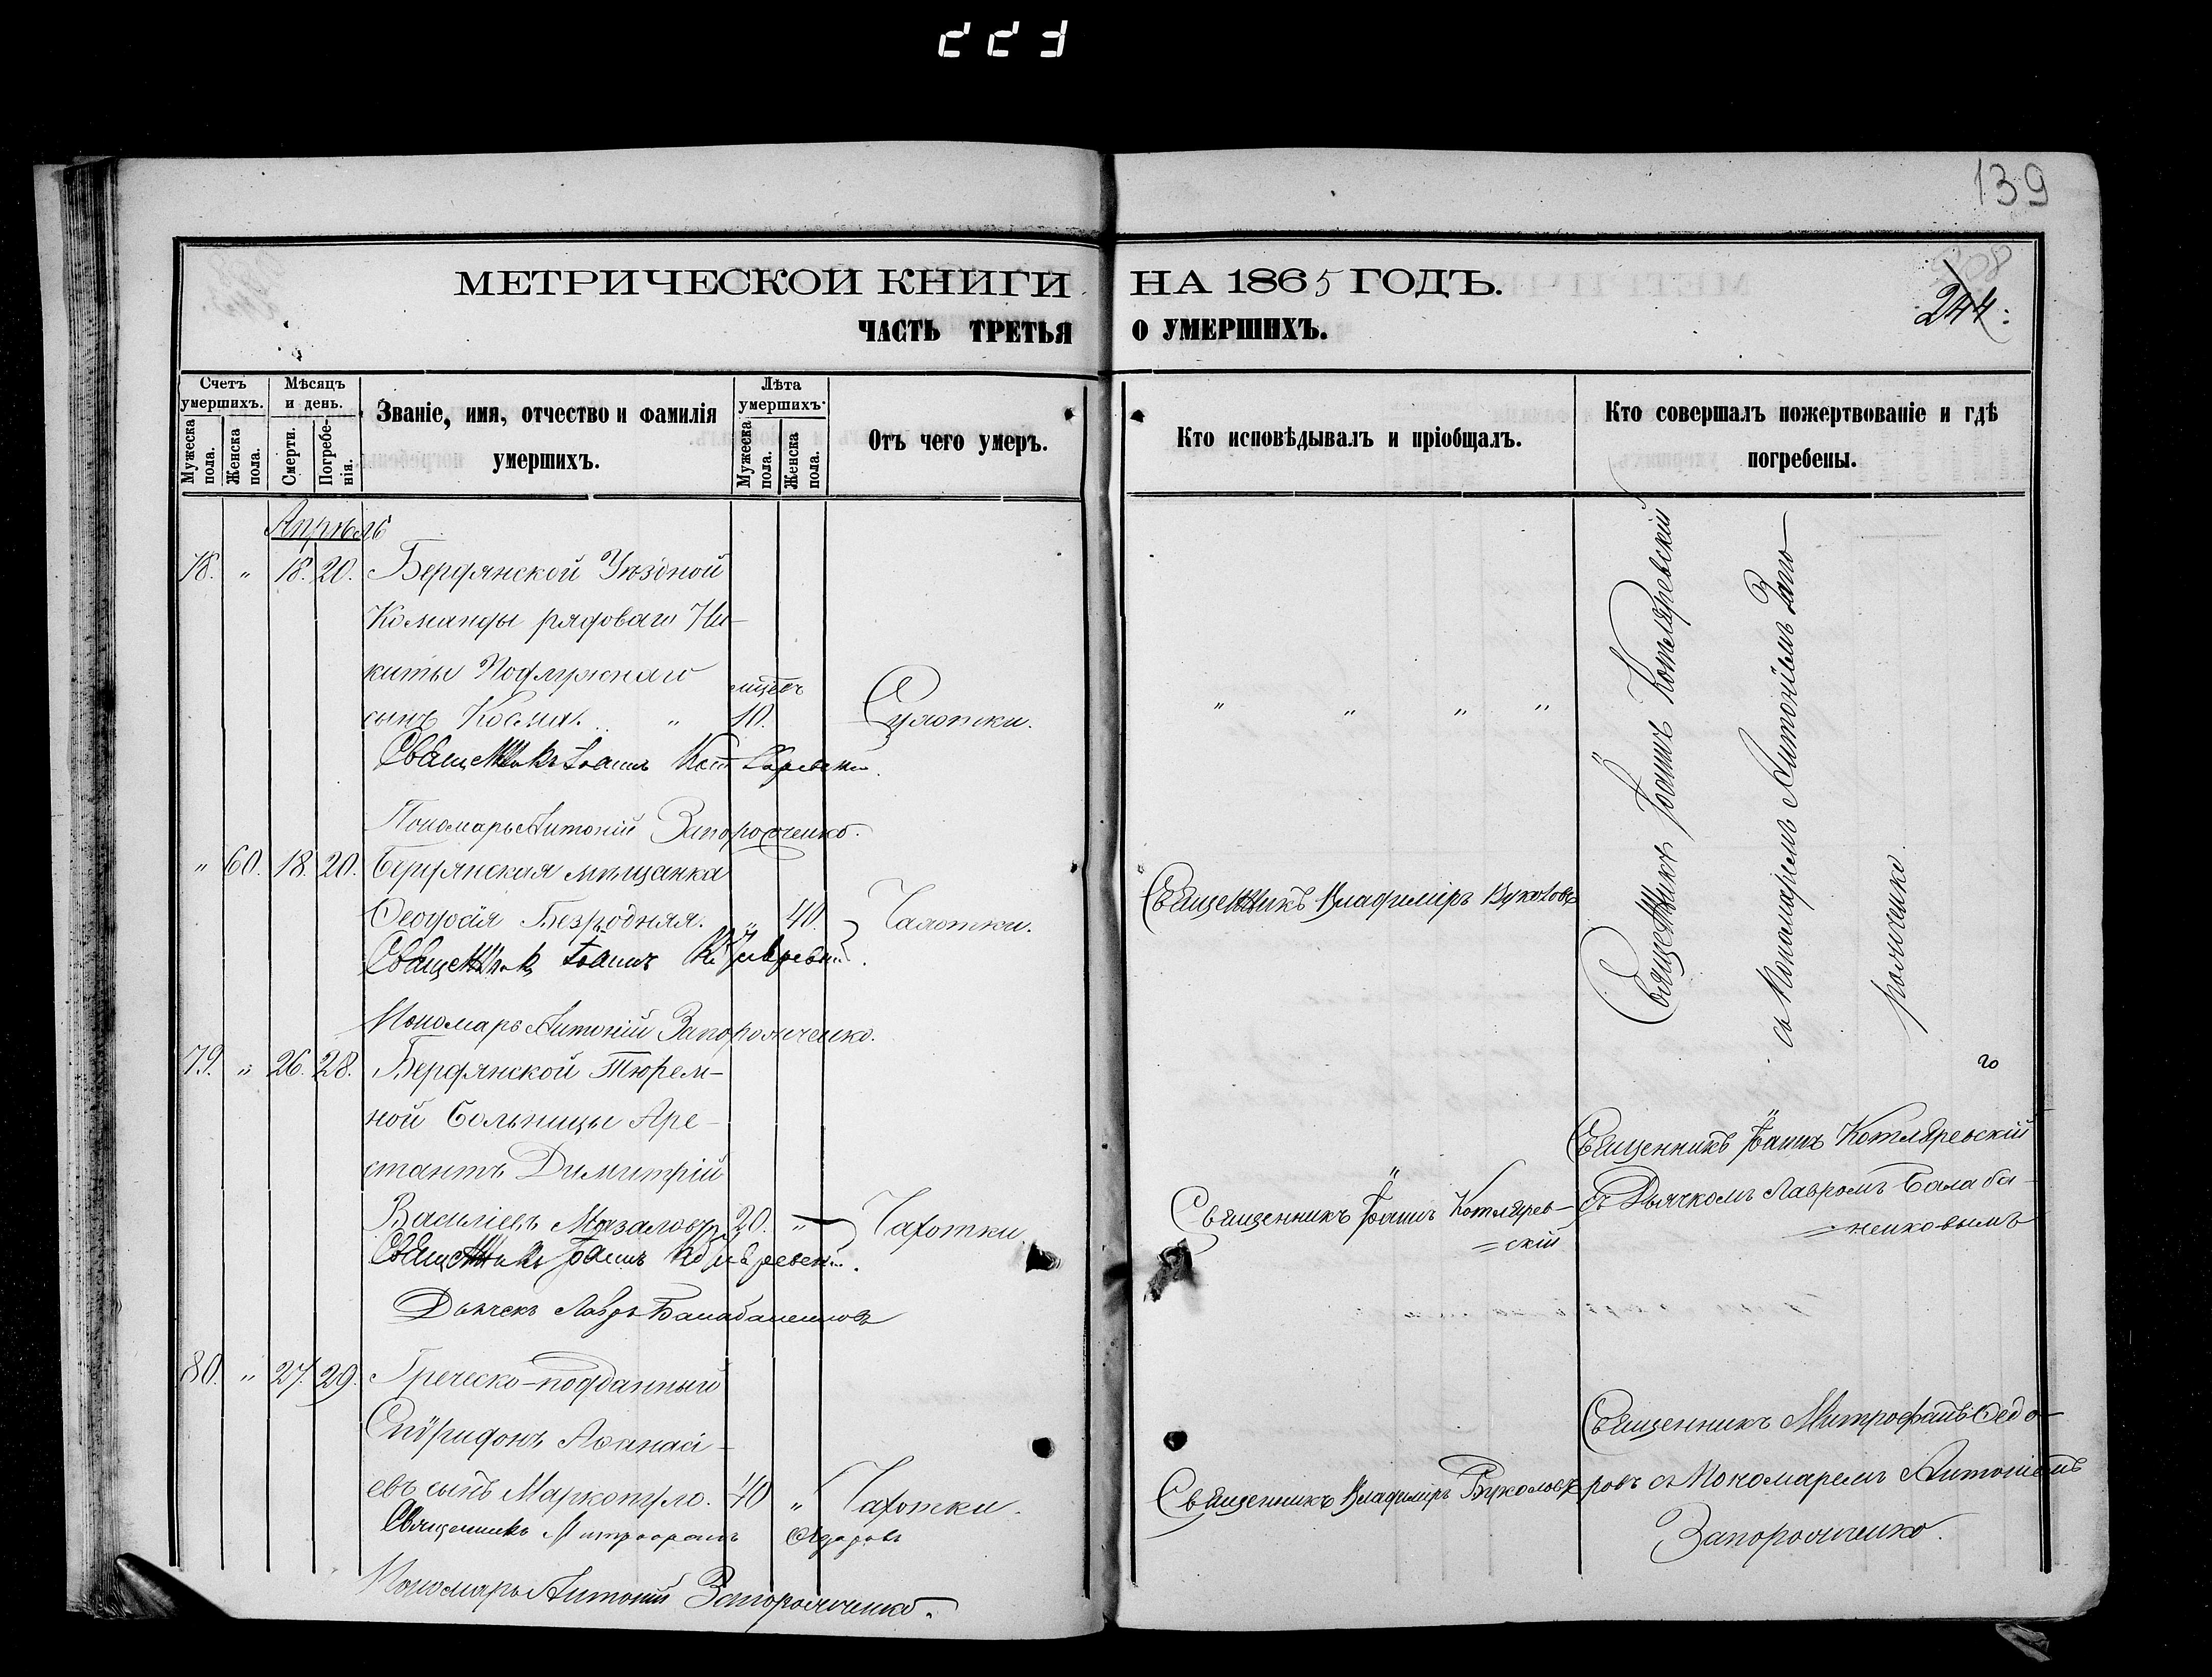 223
139
МЕТРИЧЕСКОИ КНИГИ НА 1865 ГОДЪ.
ЧАСТЬ ТРЕТЬЯ О УМЕРШИХЪ.
244.
Счетъ умершихъ.
Мужеска пола.
Женска пола.
Мѣсяцъ и день.
Смерти.
Погребенія.
Званіе, имя, отчество и фамилія
умершихъ.
Лѣта умершихъ
Мужеска пола.
Женска пола.
Отъ чего умеръ.
Кто исповѣдывалъ и пріобщалъ.
Кто совершалъ пожертвованіе и гдѣ
погребены.
Апрѣль
78. " 18. 20. Бердянской Уѣздной
Команды рядоваго Ни-
киты Подлужнаго
сынъ Косма. " 10.
Священникъ Іоаннъ Котляревскій.
Пономарь Антоній Запорожченко.
" " " "
Священникъ Іоаннъ Котляревскій
съ Пономаремъ Антоніемъ Запо-
рожченко
" 60. 18. 20. Бердянская мѣщанка
Феодосія Безродняя. " 40. Чахотки.
Священникъ Іоаннъ Котляревскій.
Пономарь Антоній Запорожченко.
Священникъ Владиміръ Вуколовъ
79. " 26. 28. Бердянской Тюрем-
ной Больницы Аре-
стантъ Димитрій
Василіевъ 20. " Чахотки
Священникъ Іоаннъ Котляревскій.
Дьячекъ Лавръ Балабаненковъ
Священникъ Іоаннъ Котлярев-
=скій
Священникъ Іоаннъ Котляревскій
съ Дьячкомъ Лавромъ Балаба-
=ненковымъ
80. " 27. 29. Греческо-подданный
Спѵридонъ Аѳанасі-
евъ сынъ Маркопуло. 40 " Чахотки.
Священникъ Митрофанъ Ѳедоровъ
Пономарь Антоній Запорожченко.
Священникъ Владиміръ Вуколовъ
Священникъ Митрофанъ Ѳедо-
ровъ съ Пономаремъ Антоніемъ
Запорожченко.